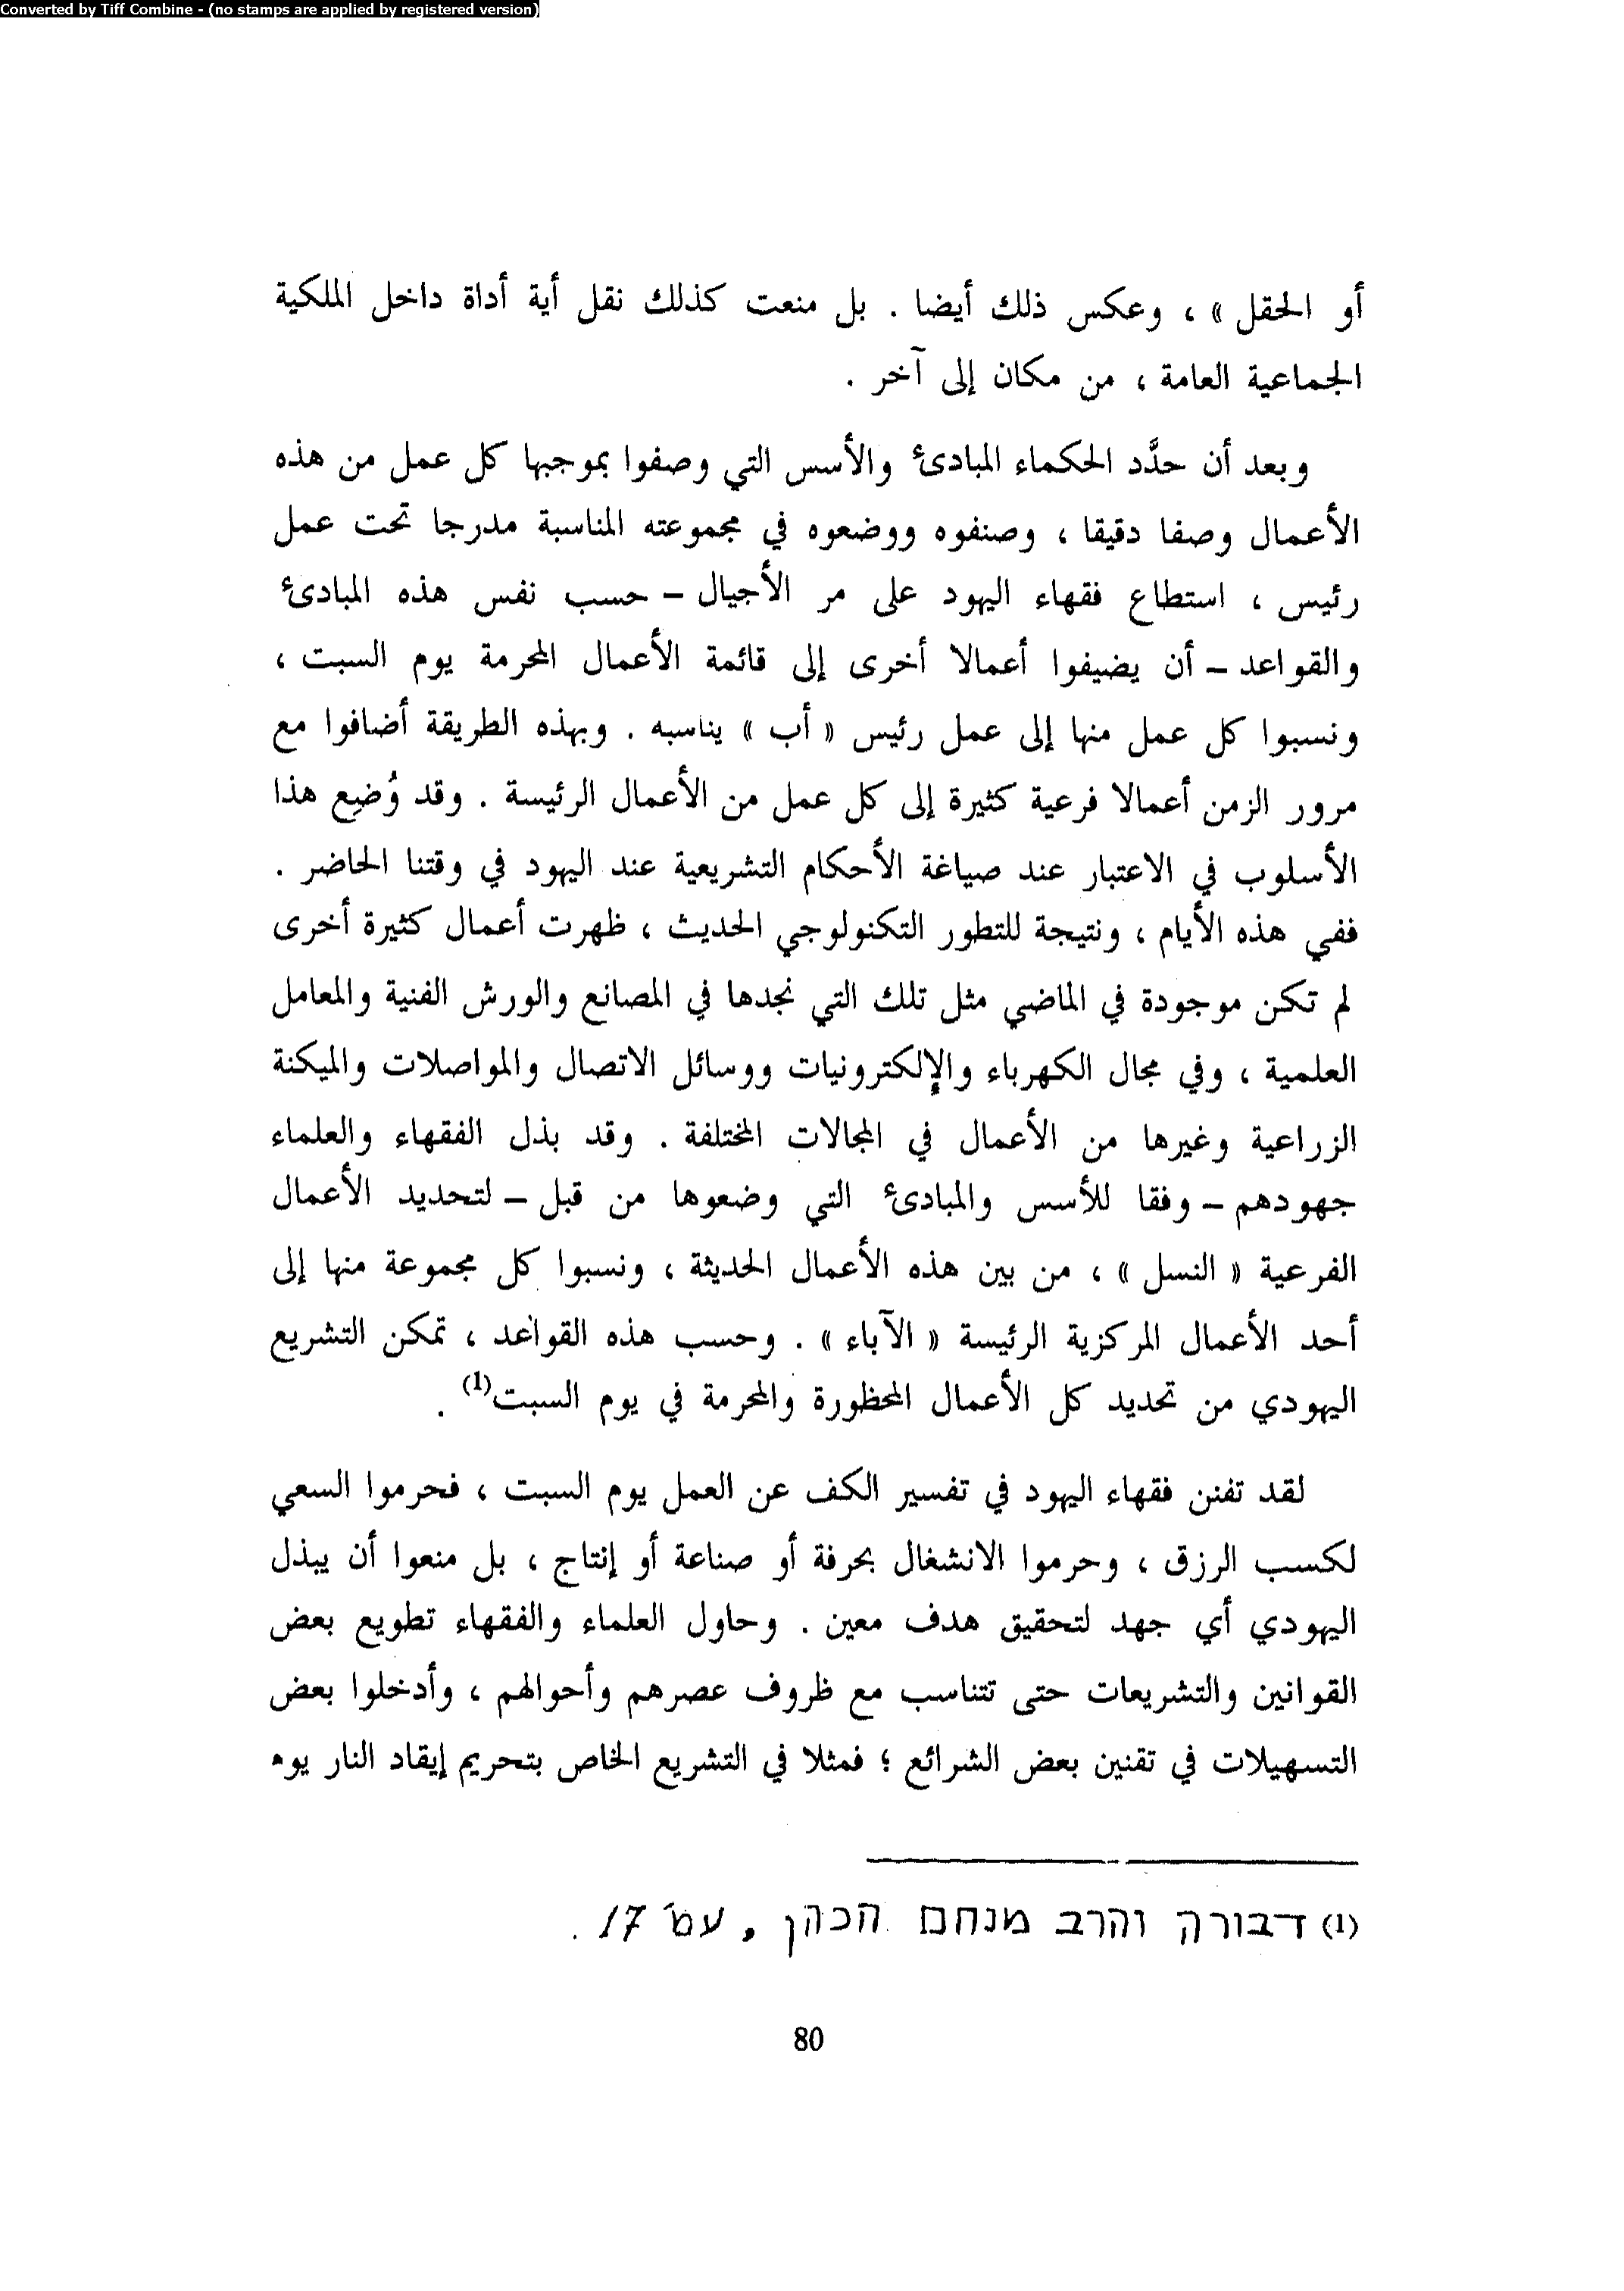 Converted by Tiff Combine - (no stamps are applied by registered version)
أو الحقل » ، وعكس ذلك أيضا . بل منعت كذلك نقل أية أداة داخل الملكية
الجماعية العامة ، من مكان إلى آخر .
وبعد أن حدَّد الحكماء المبادئ والأسس التي وصفوا بموجبها كل عمل من هذه
الأعمال وصفا دقيقا ، وصنفوه ووضعوه في مجموعته المناسبة مدرجا تحت عمل
رئيس ، استطاع فقهاء اليهود على مر الأجيال – حسب نفس هذه المبادئ
والقواعد – أن يضيفوا أعمالا أخرى إلى قائمة الأعمال المحرمة يوم السبت ،
ونسبوا كل عمل منها إلى عمل رئيس « أب » يناسبه . وبهذه الطريقة أضافوا مع
مرور الزمن أعمالا فرعية كثيرة إلى كل عمل من الأعمال الرئيسة . وقد وُضِع هذا
الأسلوب في الاعتبار عند صياغة الأحكام التشريعية عند اليهود في وقتنا الحاضر .
ففي هذه الأيام ، ونتيجة للتطور التكنولوجي الحديث ، ظهرت أعمال كثيرة أخرى
لم تكن موجودة في الماضي مثل تلك التي نجدها في المصانع والورش الفنية والمعامل
العلمية ، وفي مجال الكهرباء والإلكترونيات ووسائل الاتصال والمواصلات والميكنة
الزراعية وغيرها من الأعمال في المجالات المختلفة . وقد بذل الفقهاء والعلماء
جهودهم – وفقا للأسس والمبادئ التي وضعوها من قبل – لتحديد الأعمال
الفرعية « النسل » ، من بين هذه الأعمال الحديثة ، ونسبوا كل مجموعة منها إلى
أحد الأعمال المركزية الرئيسة « الآباء » . وحسب هذه القواعد ، تمكن التشريع
اليهودي من تحديد كل الأعمال المحظورة والمحرمة في يوم السبت(1) .
لقد تفنن فقهاء اليهود في تفسير الكف عن العمل يوم السبت ، فحرموا السعي
لكسب الرزق ، وحرموا الانشغال بحرفة أو صناعة أو إنتاج ، بل منعوا أن يبذل
اليهودي أي جهد لتحقيق هدف معين . وحاول العلماء والفقهاء تطويع بعض
القوانين والتشريعات حتى تتناسب مع ظروف عصرهم وأحوالهم ، وأدخلوا بعض
التسهيلات في تقنين بعض الشرائع ؛ فمثلا في التشريع الخاص بتحريم إيقاد النار يوم
(1) דבורה והרב מנחם הכהן , עמ' 17 .
80